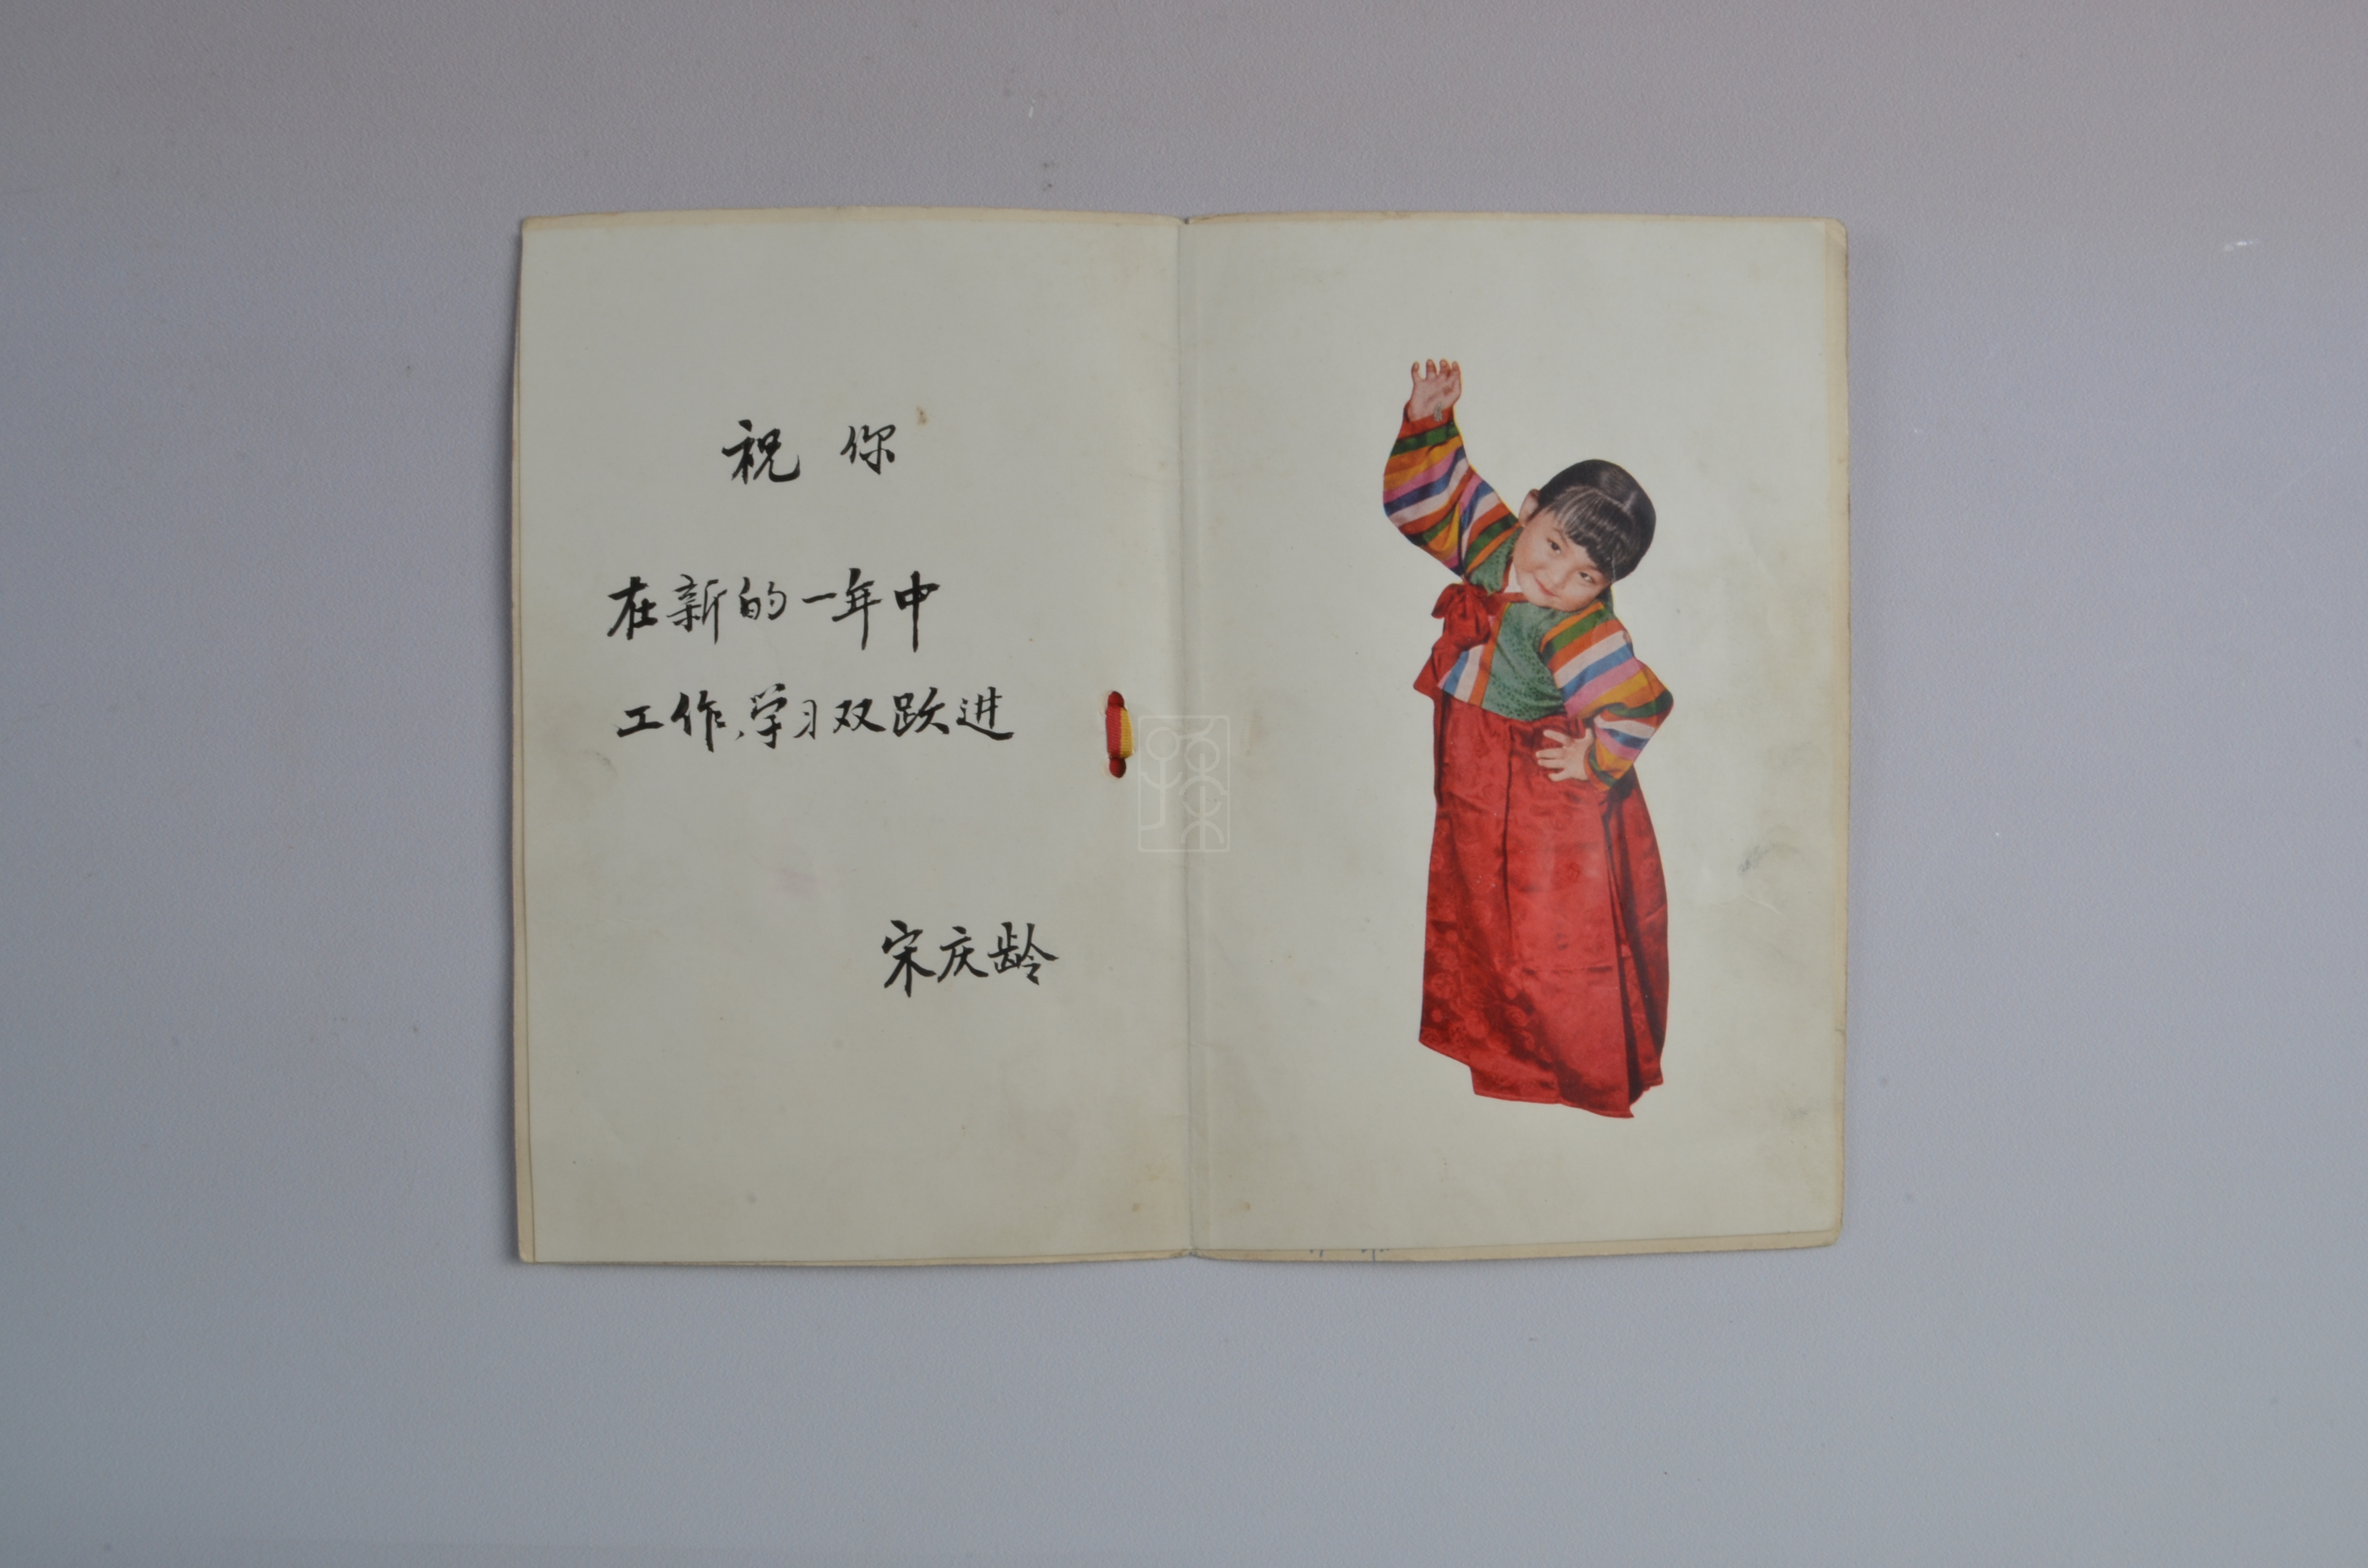 祝你
在新的一年中
工作、学习双跃进
宋庆龄